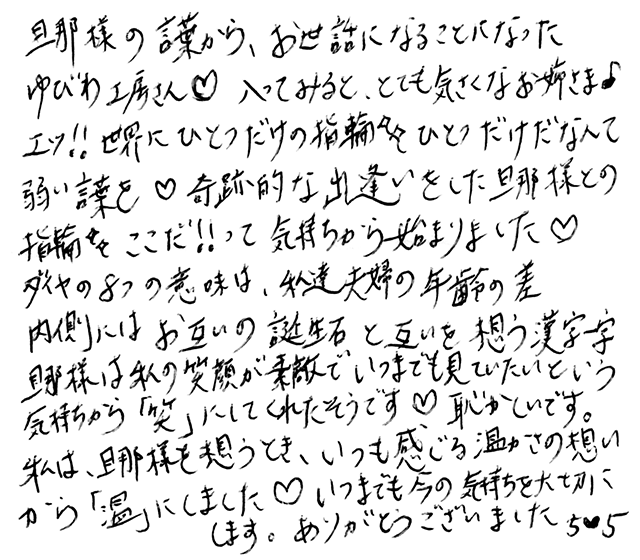 旦那様の言葉から、お世話になることになった
ゆびわ工房さん♡ 入ってみると、とても気さくなお姉さま♪
エッ!! 世界にひとつだけの指輪✨ ひとつだけだなんて
弱い言葉を♡ 奇跡的な出逢いをした旦那様との
指輪✨ ここだ!!って 気持ちから始まりました♡
ダイヤの8つの意味は、私達夫婦の年齢の差
内側にはお互いの誕生石と互いを想う漢字一字
旦那様は私の笑顔が素敵でいつまでも見ていたいという
気持ちから「笑」にしてくれたそうです♡ 恥かしいです。
私は、旦那様を想うとき、いつも感じる温かさの想い
から「温」にしました♡ いつまでも今の気持ちを大切に
します。ありがとうございました 5♥5